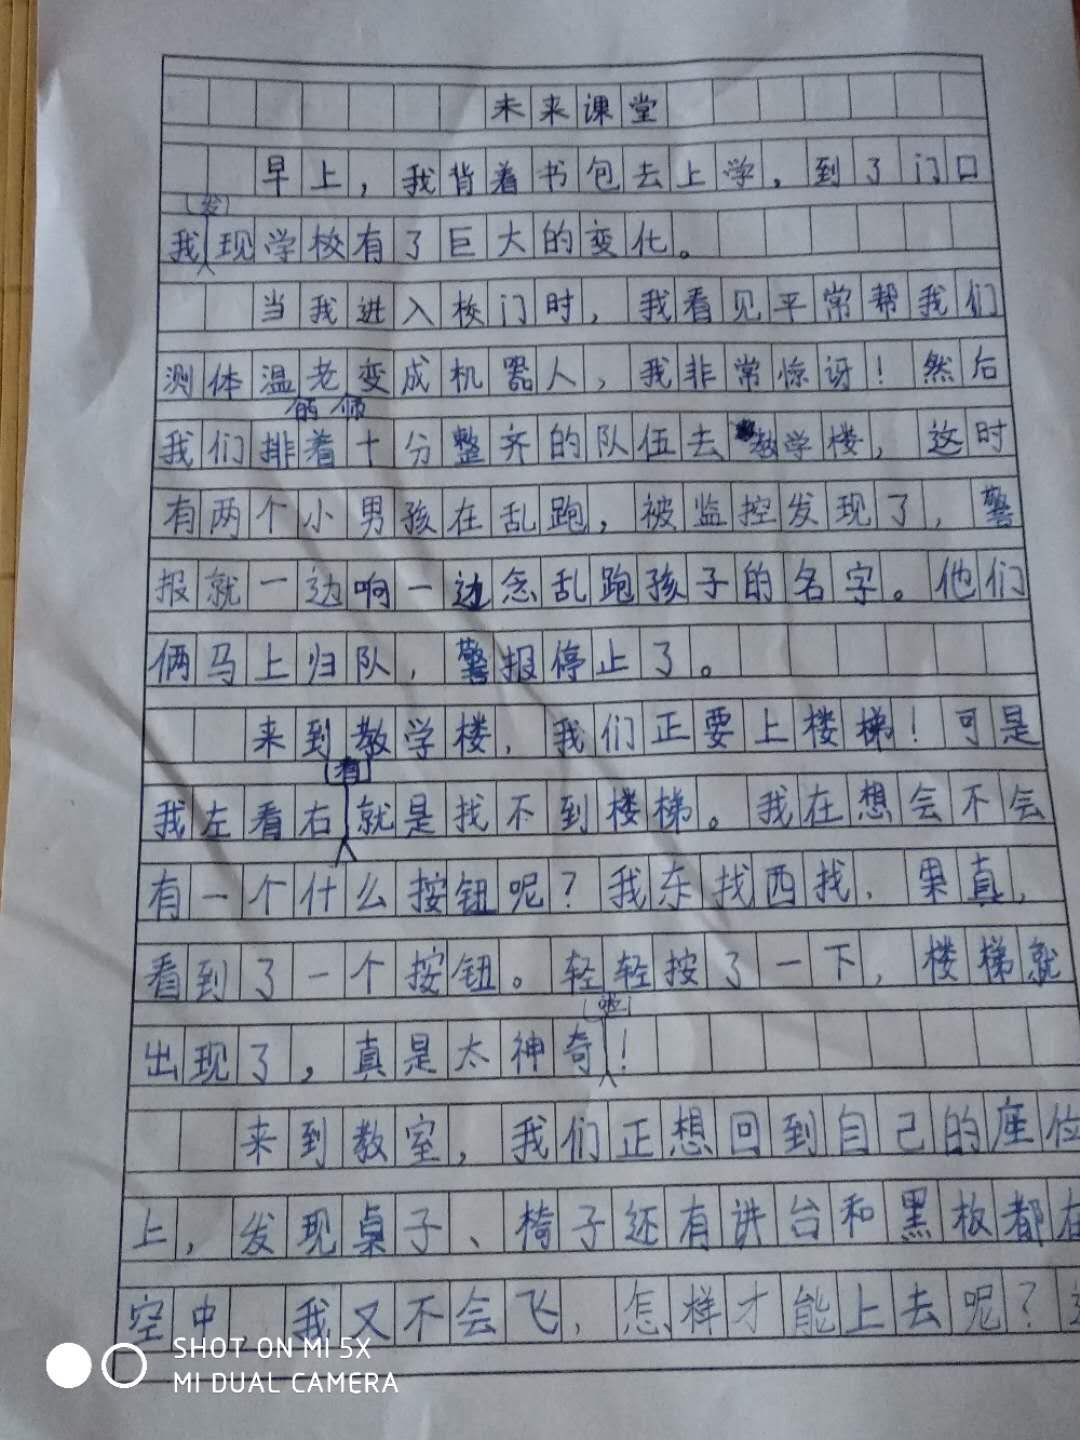 未来课堂
早上，我背着书包去上学，到了门口
(发)
我现学校有了巨大的变化。
当我进入校门时，我看见平常帮我们
测体温老变成机器人，我非常惊讶！然后
的师
我们排着十分整齐的队伍去教学楼，这时
有两个小男孩在乱跑，被监控发现了，警
报就一边响一边念乱跑孩子的名字。他们
俩马上归队，警报停止了。
来到教学楼，我们正要上楼梯！可是
(看)
我左看右就是找不到楼梯。我在想会不会
有一个什么按钮呢？我东找西找，果真，
看到了一个按钮。轻轻按了一下，楼梯就
出现了，真是太神奇！
来到教室，我们正想回到自己的座位
上，发现桌子、椅子还有讲台和黑板都在
空中，我又不会飞，怎样才能上去呢？
SHOT ON MI 5X
MI DUAL CAMERA